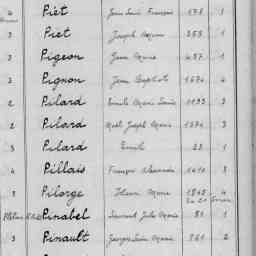 4 Piet Jean Louis François 178 1
3 Piet Joseph Marie 353 1
3 Pigeon Jean Marie 457 1
3 Pignon Jean Baptiste 1574 4
2 Pilard Emile Marie Louis 1193 3
2 Pilard Noël Joseph Marie 1374 3
3 Pilard Emile 23 1
4 Pillais François Alexandre 1410 3
3 Pilorge Henri Marie 1845 4
Pinabel Laurent Jules Marie 81 1
3 Pinault Georges Marie 761 2